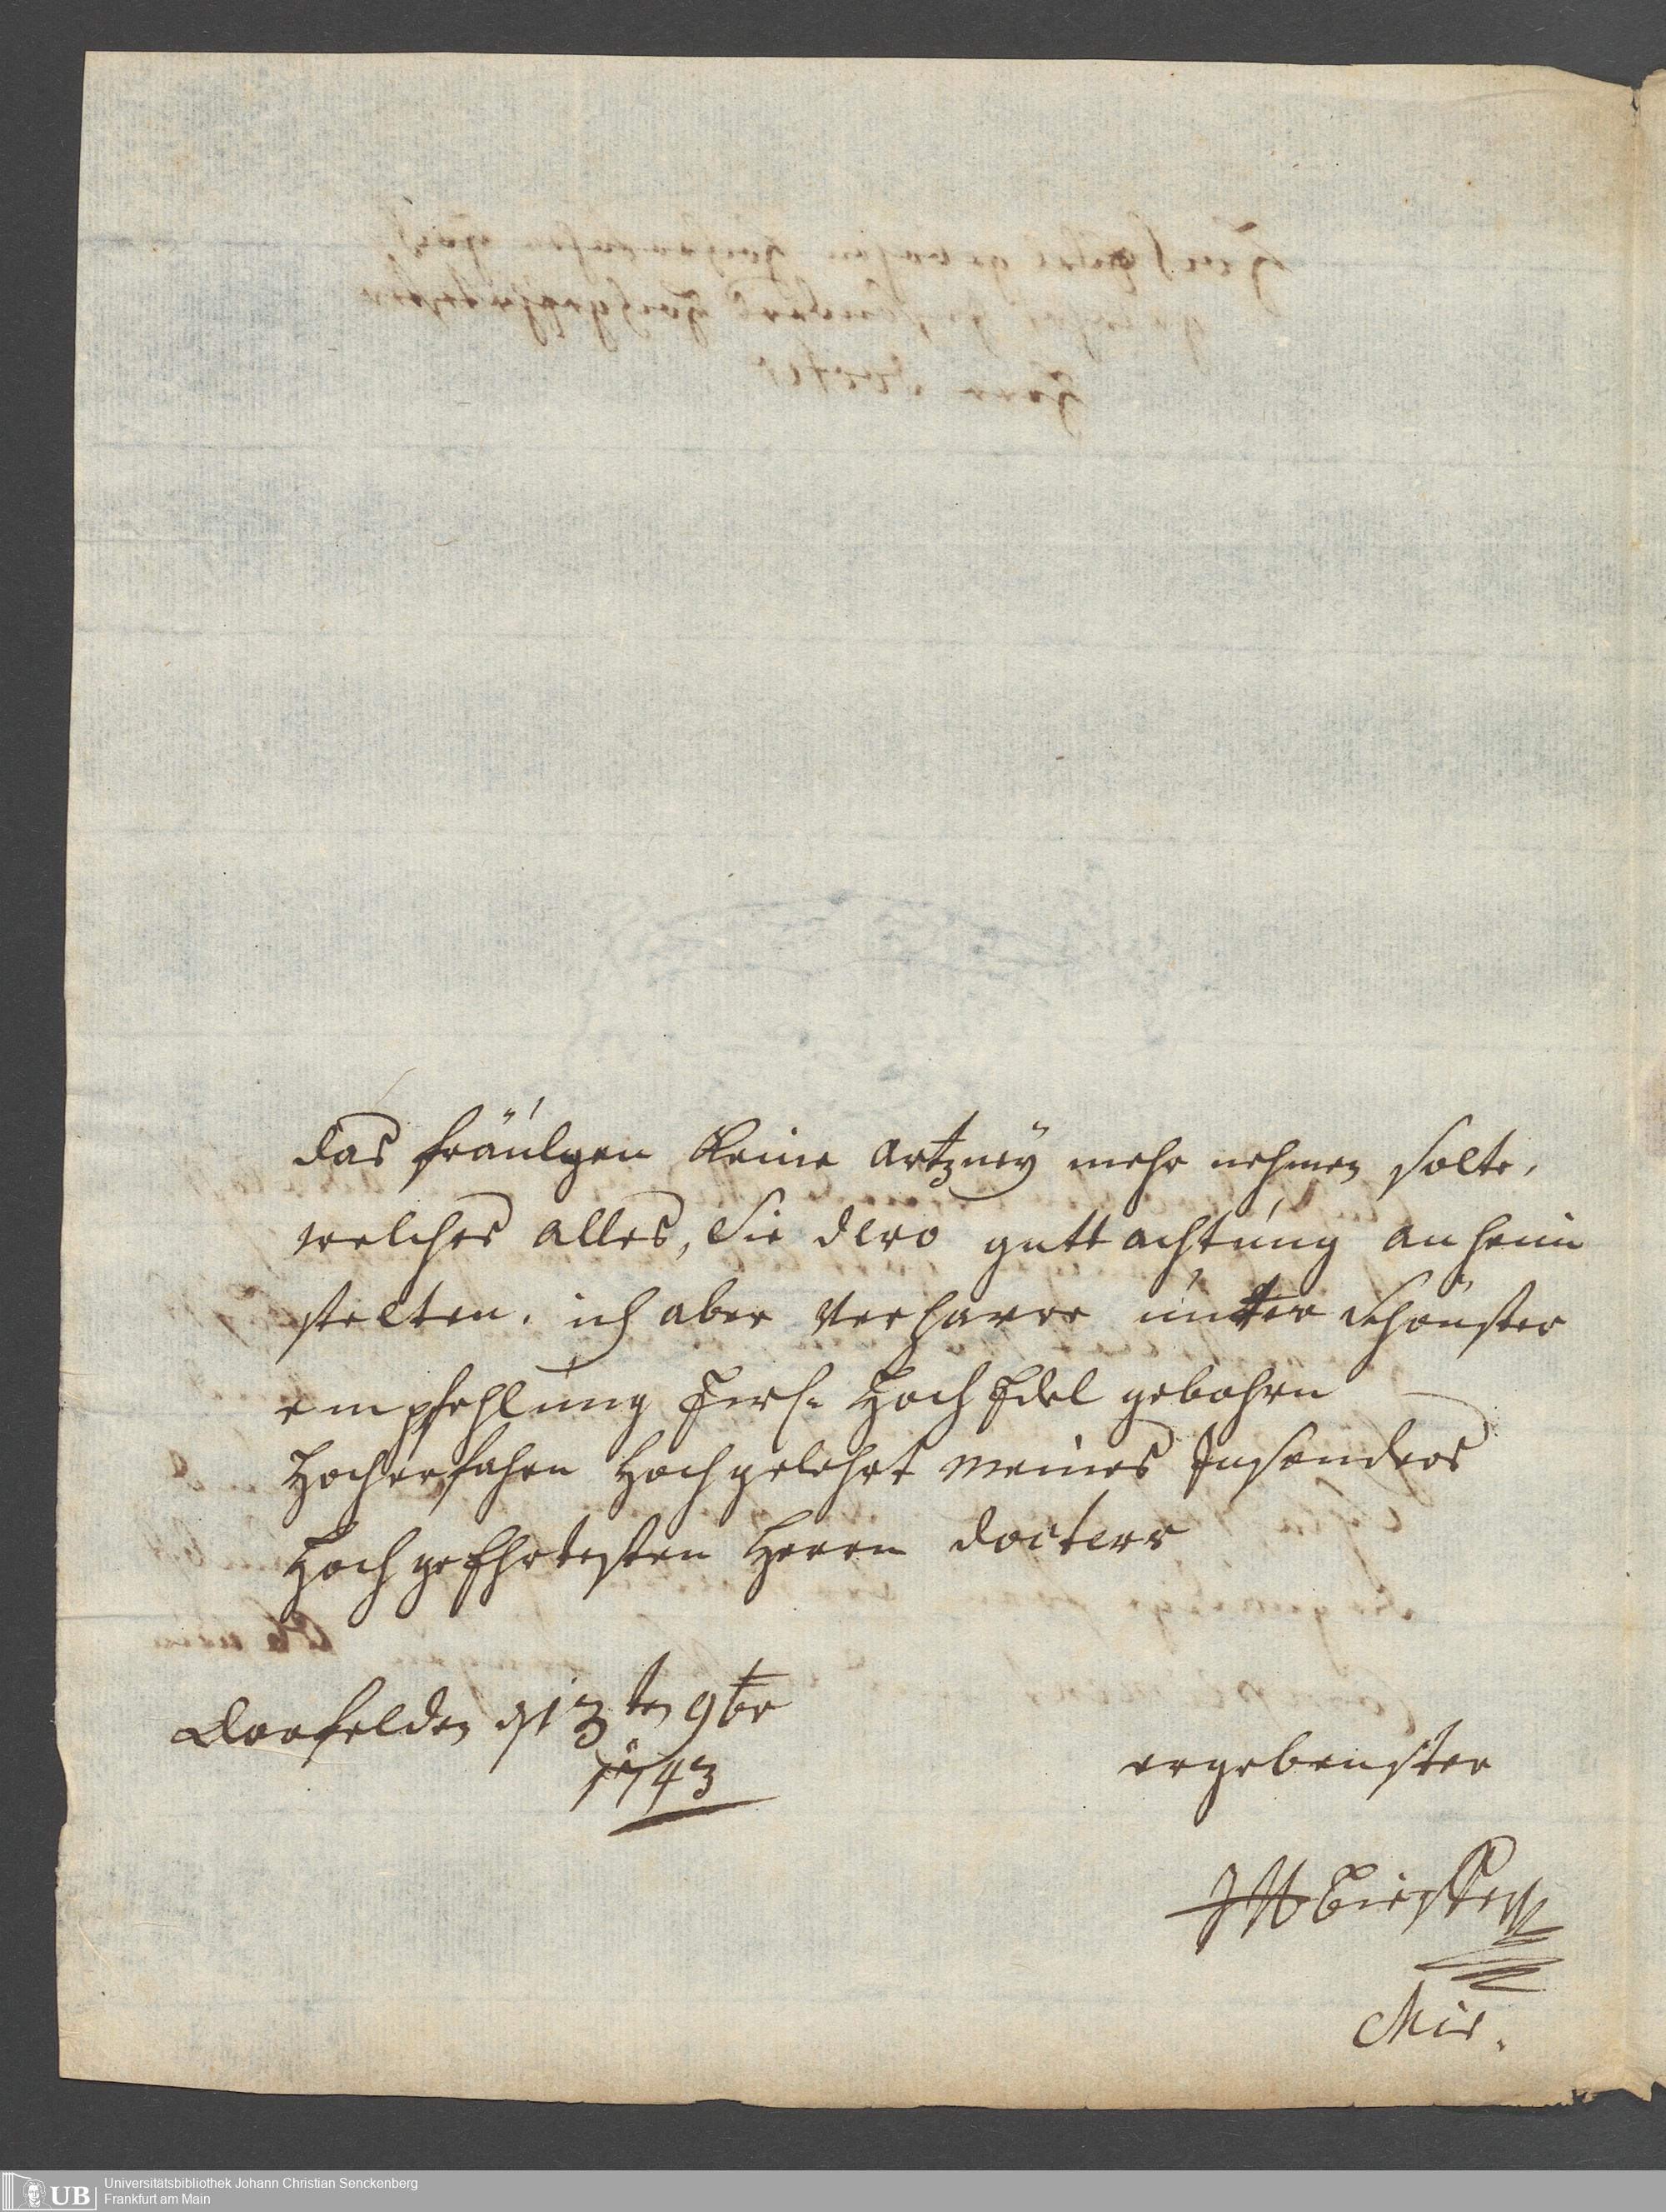 das fräulgen Keine artzneÿ mehr nehmen solte,
welches alles, Sie dero gutt achtung an heim
stelten. ich aber verharre unter schönster
empfehlung Hoch Edel gebohrn
Hocherfahrn Hochgelehrt meines Insonders
Hochgeehrtesten Herrn docters
Dorfelden d 13ten 9br
1743
ergebenster
Universitätsbibliothek Johann Christian Senckenberg
UB Frankfurt am Main